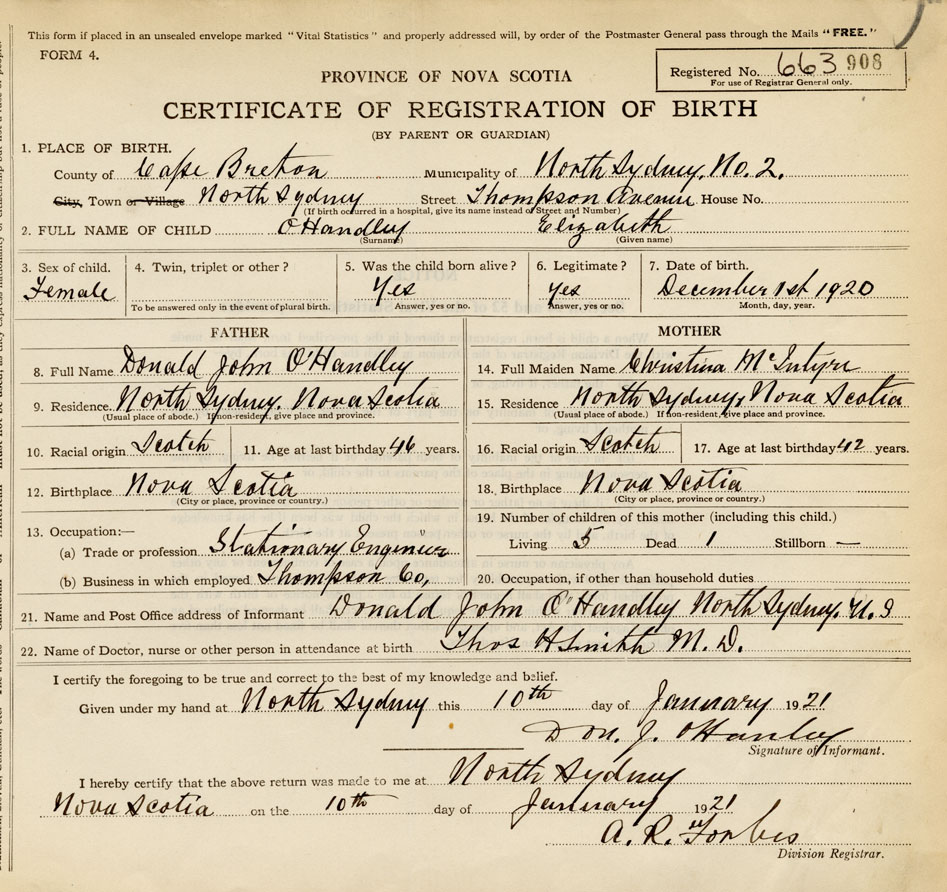 This form if placed in an unsealed envelope marked "Vital Statistics" and properly addressed will, by order of the Postmaster General pass through the Mails "FREE."
FORM 4.
Registered No. 663 908
For use of Registrar General only.
PROVINCE OF NOVA SCOTIA
CERTIFICATE OF REGISTRATION OF BIRTH
(BY PARENT OR GUARDIAN)
1. PLACE OF BIRTH.
County of Cape Breton Municipality of North Sydney, No. 2.
City, Town or Village North Sydney Street Thompson Avenue House No.
(If birth occurred in a hospital, give its name instead of Street and Number)
2. FULL NAME OF CHILD O'Handley Elizabeth
(Surname) (Given name)
3. Sex of child. 4. Twin, triplet or other? 5. Was the child born alive? 6. Legitimate? 7. Date of birth.
Female Yes Yes December 1st 1920
To be answered only in the event of plural birth. Answer, yes or no. Answer, yes or no. Month, day, year.
FATHER
8. Full Name Donald John O'Handley
9. Residence. North Sydney, Nova Scotia
(Usual place of abode.) If non-resident, give place and province.
10. Racial origin Scotch 11. Age at last birthday 46 years.
12. Birthplace Nova Scotia
(City or place, province or country.)
13. Occupation:—
(a) Trade or profession Stationary Engineer
(b) Business in which employed Thompson Co,
MOTHER
14. Full Maiden Name Christina McIntyre
15. Residence North Sydney, Nova Scotia
(Usual place of abode.) If non-resident, give place and province.
16. Racial origin Scotch 17. Age at last birthday 42 years.
18. Birthplace Nova Scotia
(City or place, province or country.)
19. Number of children of this mother (including this child.)
Living 5 Dead 1 Stillborn —
20. Occupation, if other than household duties
21. Name and Post Office address of Informant Donald John O'Handley North Sydney. N. S
22. Name of Doctor, nurse or other person in attendance at birth Thos H Smith M. D.
I certify the foregoing to be true and correct to the best of my knowledge and belief.
Given under my hand at North Sydney this 10th day of January 1921
Don. J. O'Hanley
Signature of Informant.
I hereby certify that the above return was made to me at North Sydney
Nova Scotia on the 10th day of January 1921
A. R. Forbes
Division Registrar.